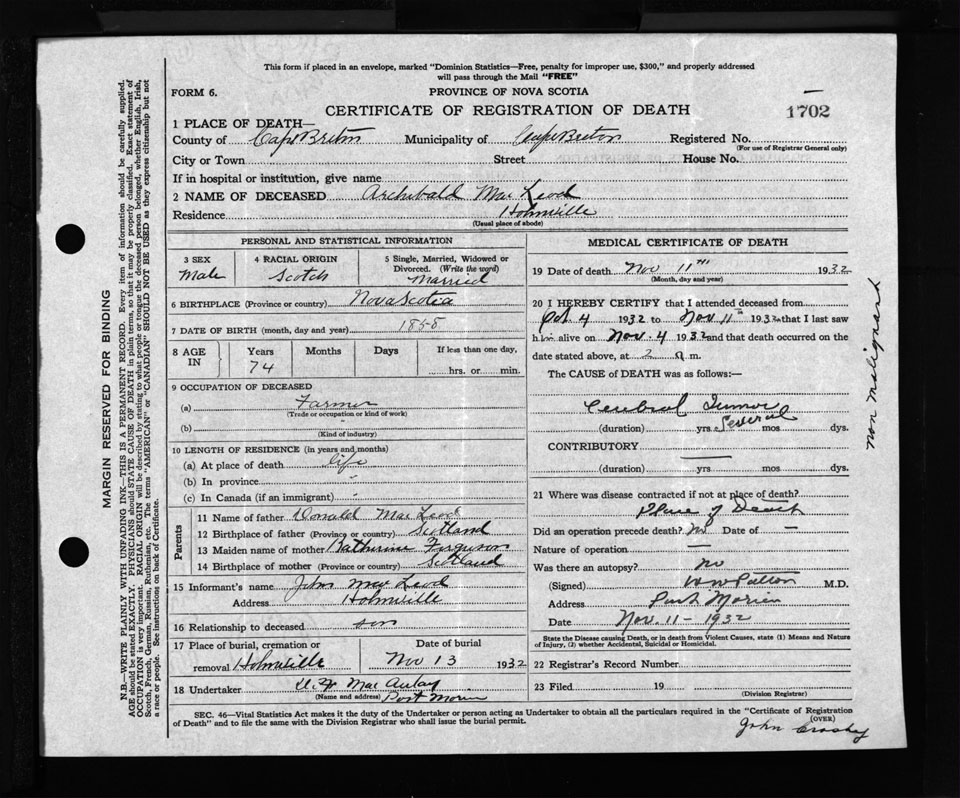 This form if placed in an envelope, marked "Dominion Statistics—Free, penalty for improper use, $300," and properly addressed
will pass through the Mail "FREE"
FORM 6.
PROVINCE OF NOVA SCOTIA
CERTIFICATE OF REGISTRATION OF DEATH
1702
1 PLACE OF DEATH—
County of Cape Breton Municipality of Cape Breton Registered No.
(For use of Registrar General only)
City or Town Street House No.
If in hospital or institution, give name
2 NAME OF DECEASED Archibald Mac Leod
Residence Holmville
(Usual place of abode)
PERSONAL AND STATISTICAL INFORMATION
3 SEX 4 RACIAL ORIGIN 5 Single, Married, Widowed or
Divorced. (Write the word)
Male Scotch Married
6 BIRTHPLACE (Province or country) Nova Scotia
7 DATE OF BIRTH (month, day and year) 1858
8 AGE IN Years Months Days If less than one day,
74 hrs. or min.
9 OCCUPATION OF DECEASED
(a) Farmer
(Trade or occupation or kind of work)
(b) "
(Kind of industry)
10 LENGTH OF RESIDENCE (in years and months)
(a) At place of death life
(b) In province "
(c) In Canada (if an immigrant) "
Parents
11 Name of father Donald Mac Leod
12 Birthplace of father (Province or country) Scotland
13 Maiden name of mother Katherine Ferguson
14 Birthplace of mother (Province or country) Scotland
15 Informant's name John Mac Leod
Address Holmville
16 Relationship to deceased son
17 Place of burial, cremation or Date of burial
removal Holmville Nov 13 1932
18 Undertaker Mac Aulay
(Name and address) Port Morien
MEDICAL CERTIFICATE OF DEATH
19 Date of death Nov 11th 1932
(Month, day and year)
20 I HEREBY CERTIFY that I attended deceased from
Oct 4 1932 to Nov 11th 1932 that I last saw
him alive on Nov. 4 1932 and that death occurred on the
date stated above, at 2 a m.
The CAUSE of DEATH was as follows:—
Cerebral Tumor
(duration) yrs Several mos dys.
CONTRIBUTORY
(duration) yrs mos dys.
21 Where was disease contracted if not at place of death?
Place of Death
Did an operation precede death? No Date of —
Nature of operation —
Was there an autopsy? no
(Signed) W W Patton M.D.
Address Port Morien
Date Nov. 11 - 1932
State the Disease causing Death, or in death from Violent Causes, state (1) Means and Nature
of Injury, (2) whether Accidental, Suicidal or Homicidal.
22 Registrar's Record Number
23 Filed 19
(Division Registrar)
SEC. 46—Vital Statistics Act makes it the duty of the Undertaker or person acting as Undertaker to obtain all the particulars required in the "Certificate of Registration
of Death" and to file the same with the Division Registrar who shall issue the burial permit. (OVER)
John Crosby
non malignant
MARGIN RESERVED FOR BINDING
N.B.—WRITE PLAINLY WITH UNFADING INK—THIS IS A PERMANENT RECORD. Every item of information should be carefully supplied.
AGE should be stated EXACTLY. PHYSICIANS should STATE CAUSE OF DEATH in plain terms, so that it may be properly classified. Exact statement of
OCCUPATION is very important. RACIAL ORIGIN will be described by stating to what people or tongue the deceased person belonged, whether English, Irish,
Scotch, French, German, Russian, Ruthenian, etc. The terms "AMERICAN" or "CANADIAN" SHOULD NOT BE USED as they express citizenship but not
a race or people. See instructions on back of Certificate.